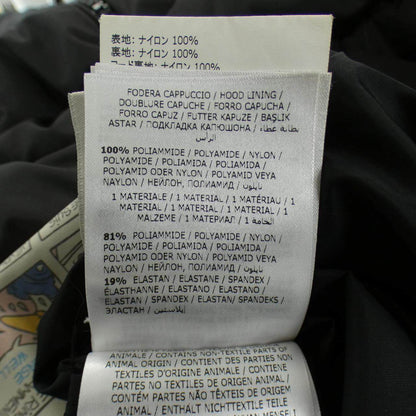 表地: ナイロン 100%
裏地: ナイロン 100%
フード裏地: ナイロン 100%
FODERA CAPPUCCIO / HOOD LINING /
DOUBLURE CAPUCHE / FORRO CAPUCHA /
FORRO CAPUZ / FUTTER KAPUZE / BAŞLIK
ASTAR / ПОДКЛАДКА КАПЮШОНА / بطانة غطاء
الرأس
100% POLIAMMIDE / POLYAMIDE / NYLON /
POLYAMIDE / POLIAMIDA / POLIAMIDA /
POLYAMID ODER NYLON / POLYAMID VEYA
NAYLON / НЕЙЛОН, ПОЛИАМИД / نايلون
1 MATERIALE / 1 MATERIAL / 1 MATÉRIAU /
1 MATERIAL / 1 MATERIAL / 1 MATERIAL / 1
MALZEME / 1 МАТЕРИАЛ / 1 الخامة
81% POLIAMMIDE / POLYAMIDE / NYLON /
POLYAMIDE / POLIAMIDA / POLIAMIDA /
POLYAMID ODER NYLON / POLYAMID VEYA
NAYLON / НЕЙЛОН, ПОЛИАМИД / نايلون
19% ELASTAN / ELASTANE / SPANDEX /
ÉLASTHANNE / ELASTANO / ELASTANO /
ELASTAN / SPANDEX / ELASTAN/ SPANDEKS /
ЭЛАСТАН / إيلاستين
ANIMALE / CONTAINS NON-TEXTILE PARTS OF
ANIMAL ORIGIN / CONTIENT DES PARTIES NON
TEXTILES D'ORIGINE ANIMALE / CONTIENE
PARTES NO TEXTILES DE ORIGEN ANIMAL /
CONTÉM PARTES NÃO TÊXTEIS DE ORIGEM
ANIMAL / ENTHÄLT NICHTTEXTILE TEILE